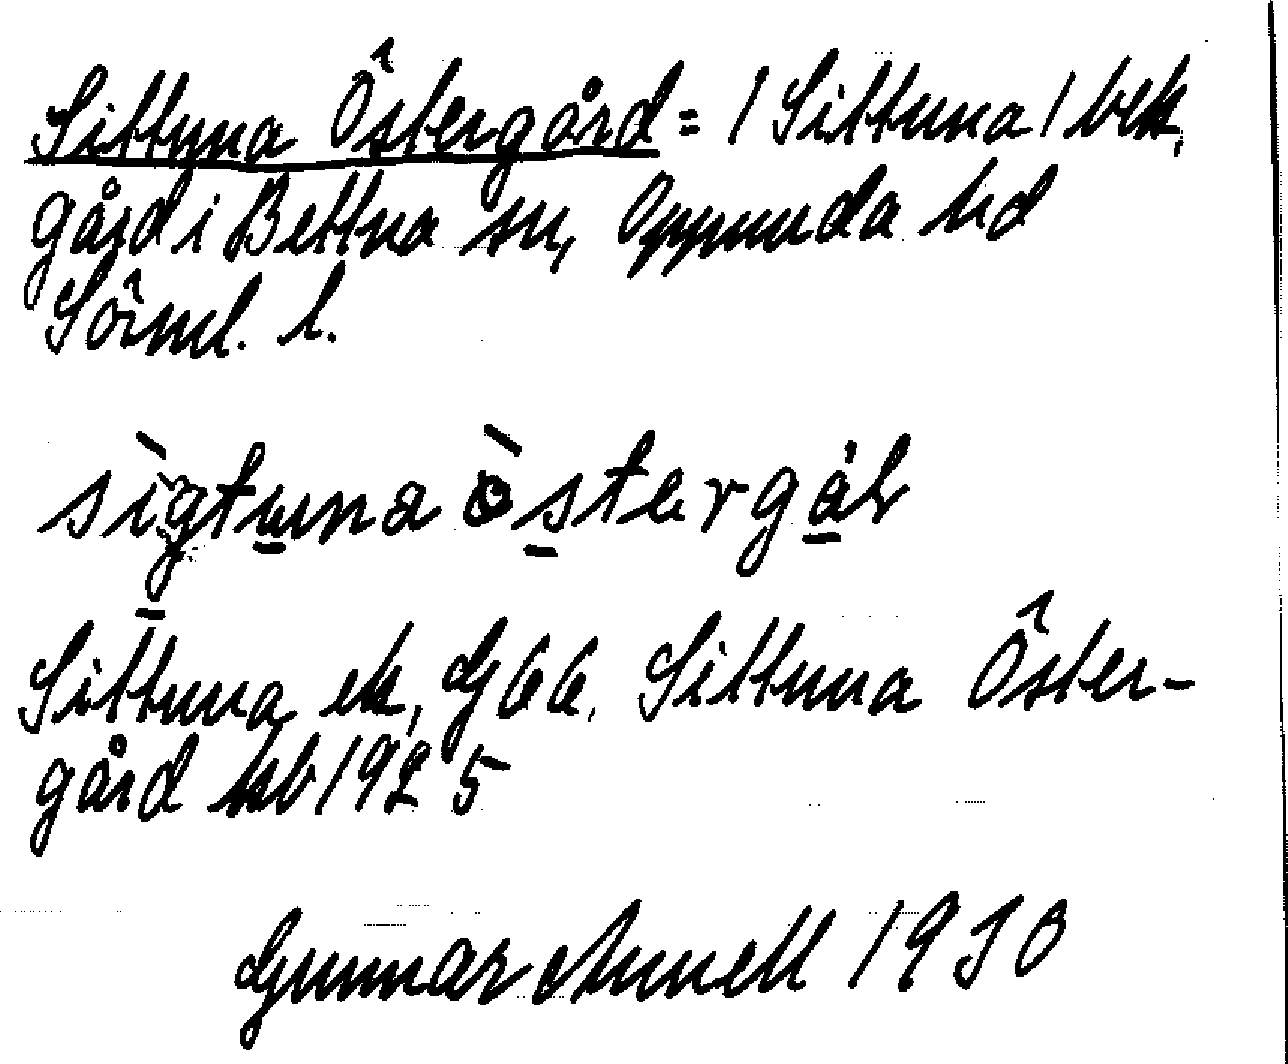 Sittuna Östergård = / Sittuna / bek,
gård i Bettna sn, Oppunda hd
Sörml. l.
sìgtuna òstergål
Sittuna ek, G 66. Sittuna Öster-
gård jb 1925
Gunnar Annell 1930